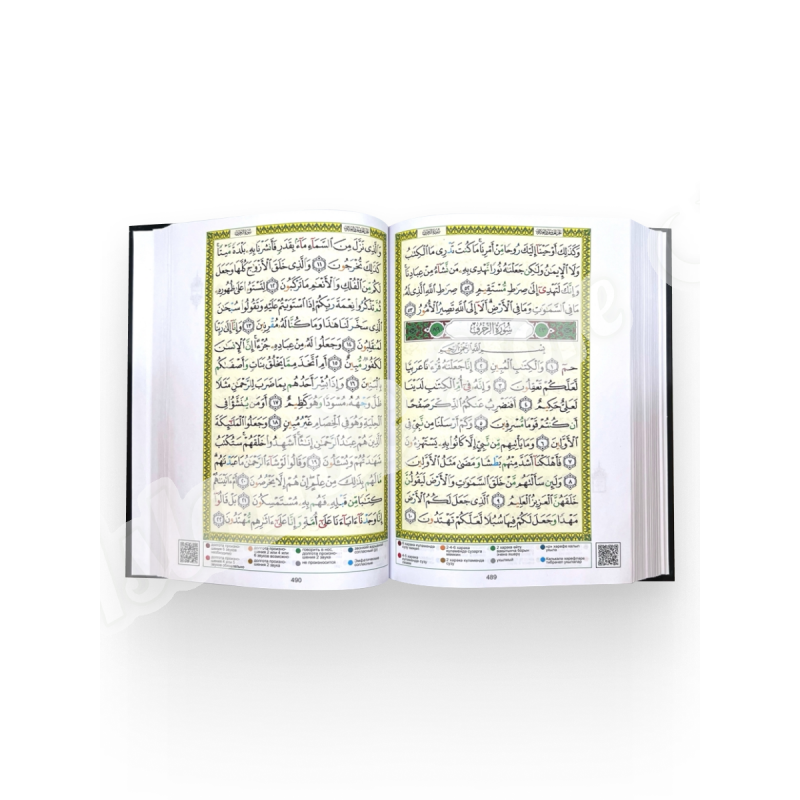 وَكَذَٰلِكَ أَوْحَيْنَآ إِلَيْكَ رُوحًا مِّنْ أَمْرِنَا مَا كُنتَ تَدْرِى مَا ٱلْكِتَٰبُ
وَلَا ٱلْإِيمَٰنُ وَلَٰكِن جَعَلْنَٰهُ نُورًا نَّهْدِى بِهِۦ مَن نَّشَآءُ مِنْ عِبَادِنَا
وَإِنَّكَ لَتَهْدِىٓ إِلَىٰ صِرَٰطٍ مُّسْتَقِيمٍ ٥٢ صِرَٰطِ ٱللَّهِ ٱلَّذِى لَهُۥ
مَا فِى ٱلسَّمَٰوَٰتِ وَمَا فِى ٱلْأَرْضِ أَلَآ إِلَى ٱللَّهِ تَصِيرُ ٱلْأُمُورُ ٥٣
سُورَةُ ٱلزُّخْرُفِ
بِسْمِ ٱللَّهِ ٱلرَّحْمَٰنِ ٱلرَّحِيمِ
حمٓ ١ وَٱلْكِتَٰبِ ٱلْمُبِينِ ٢ إِنَّا جَعَلْنَٰهُ قُرْءَٰنًا عَرَبِيًّا
لَّعَلَّكُمْ تَعْقِلُونَ ٣ وَإِنَّهُۥ فِىٓ أُمِّ ٱلْكِتَٰبِ لَدَيْنَا
لَعَلِىٌّ حَكِيمٌ ٤ أَفَنَضْرِبُ عَنكُمُ ٱلذِّكْرَ صَفْحًا
أَن كُنتُمْ قَوْمًا مُّسْرِفِينَ ٥ وَكَمْ أَرْسَلْنَا مِن نَّبِىٍّ فِى
ٱلْأَوَّلِينَ ٦ وَمَا يَأْتِيهِم مِّن نَّبِىٍّ إِلَّا كَانُوا۟ بِهِۦ يَسْتَهْزِءُونَ
٧ فَأَهْلَكْنَآ أَشَدَّ مِنْهُم بَطْشًا وَمَضَىٰ مَثَلُ ٱلْأَوَّلِينَ
٨ وَلَئِن سَأَلْتَهُم مَّنْ خَلَقَ ٱلسَّمَٰوَٰتِ وَٱلْأَرْضَ لَيَقُولُنَّ
خَلَقَهُنَّ ٱلْعَزِيزُ ٱلْعَلِيمُ ٩ ٱلَّذِى جَعَلَ لَكُمُ ٱلْأَرْضَ
مَهْدًا وَجَعَلَ لَكُمْ فِيهَا سُبُلًا لَّعَلَّكُمْ تَهْتَدُونَ ١٠
489
وَٱلَّذِى نَزَّلَ مِنَ ٱلسَّمَآءِ مَآءًۢ بِقَدَرٍ فَأَنشَرْنَا بِهِۦ بَلْدَةً مَّيْتًا
كَذَٰلِكَ تُخْرَجُونَ ١١ وَٱلَّذِى خَلَقَ ٱلْأَزْوَٰجَ كُلَّهَا وَجَعَلَ
لَكُم مِّنَ ٱلْفُلْكِ وَٱلْأَنْعَٰمِ مَا تَرْكَبُونَ ١٢ لِتَسْتَوُۥا۟ عَلَىٰ ظُهُورِهِۦ
ثُمَّ تَذْكُرُوا۟ نِعْمَةَ رَبِّكُمْ إِذَا ٱسْتَوَيْتُمْ عَلَيْهِ وَتَقُولُوا۟ سُبْحَٰنَ
ٱلَّذِى سَخَّرَ لَنَا هَٰذَا وَمَا كُنَّا لَهُۥ مُقْرِنِينَ ١٣ وَإِنَّآ إِلَىٰ رَبِّنَا
لَمُنقَلِبُونَ ١٤ وَجَعَلُوا۟ لَهُۥ مِنْ عِبَادِهِۦ جُزْءًا إِنَّ ٱلْإِنسَٰنَ
لَكَفُورٌ مُّبِينٌ ١٥ أَمِ ٱتَّخَذَ مِمَّا يَخْلُقُ بَنَاتٍ وَأَصْفَىٰكُم
بِٱلْبَنِينَ ١٦ وَإِذَا بُشِّرَ أَحَدُهُم بِمَا ضَرَبَ لِلرَّحْمَٰنِ مَثَلًا
ظَلَّ وَجْهُهُۥ مُسْوَدًّا وَهُوَ كَظِيمٌ ١٧ أَوَمَن يُنَشَّؤُا۟ فِى
ٱلْحِلْيَةِ وَهُوَ فِى ٱلْخِصَامِ غَيْرُ مُبِينٍ ١٨ وَجَعَلُوا۟ ٱلْمَلَٰٓئِكَةَ
ٱلَّذِينَ هُمْ عِبَٰدُ ٱلرَّحْمَٰنِ إِنَٰثًا أَشَهِدُوا۟ خَلْقَهُمْ سَتُكْتَبُ
شَهَٰدَتُهُمْ وَيُسْـَٔلُونَ ١٩ وَقَالُوا۟ لَوْ شَآءَ ٱلرَّحْمَٰنُ مَا عَبَدْنَٰهُم
مَّا لَهُم بِذَٰلِكَ مِنْ عِلْمٍ إِنْ هُمْ إِلَّا يَخْرُصُونَ ٢٠ أَمْ ءَاتَيْنَٰهُمْ
كِتَٰبًا مِّن قَبْلِهِۦ فَهُم بِهِۦ مُسْتَمْسِكُونَ ٢١ بَلْ قَالُوٓا۟
إِنَّا وَجَدْنَآ ءَابَآءَنَا عَلَىٰٓ أُمَّةٍ وَإِنَّا عَلَىٰٓ ءَاثَٰرِهِم مُّهْتَدُونَ ٢٢
не произносится
490